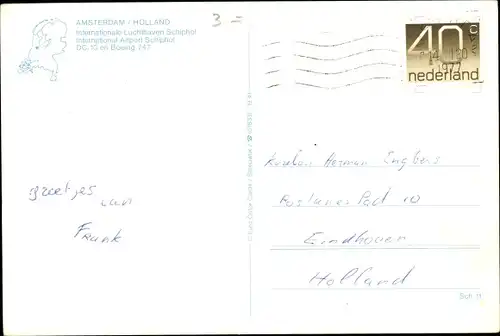 AMSTERDAM / HOLLAND
Internationale Luchthaven Schiphol
International Airport Schiphol
DC-10 en Boeing 747
3 =
40c
nederland
1977
Herman
Pad 10
Eindhoven
Holland
Groetjes
van
Frank
Sch 11